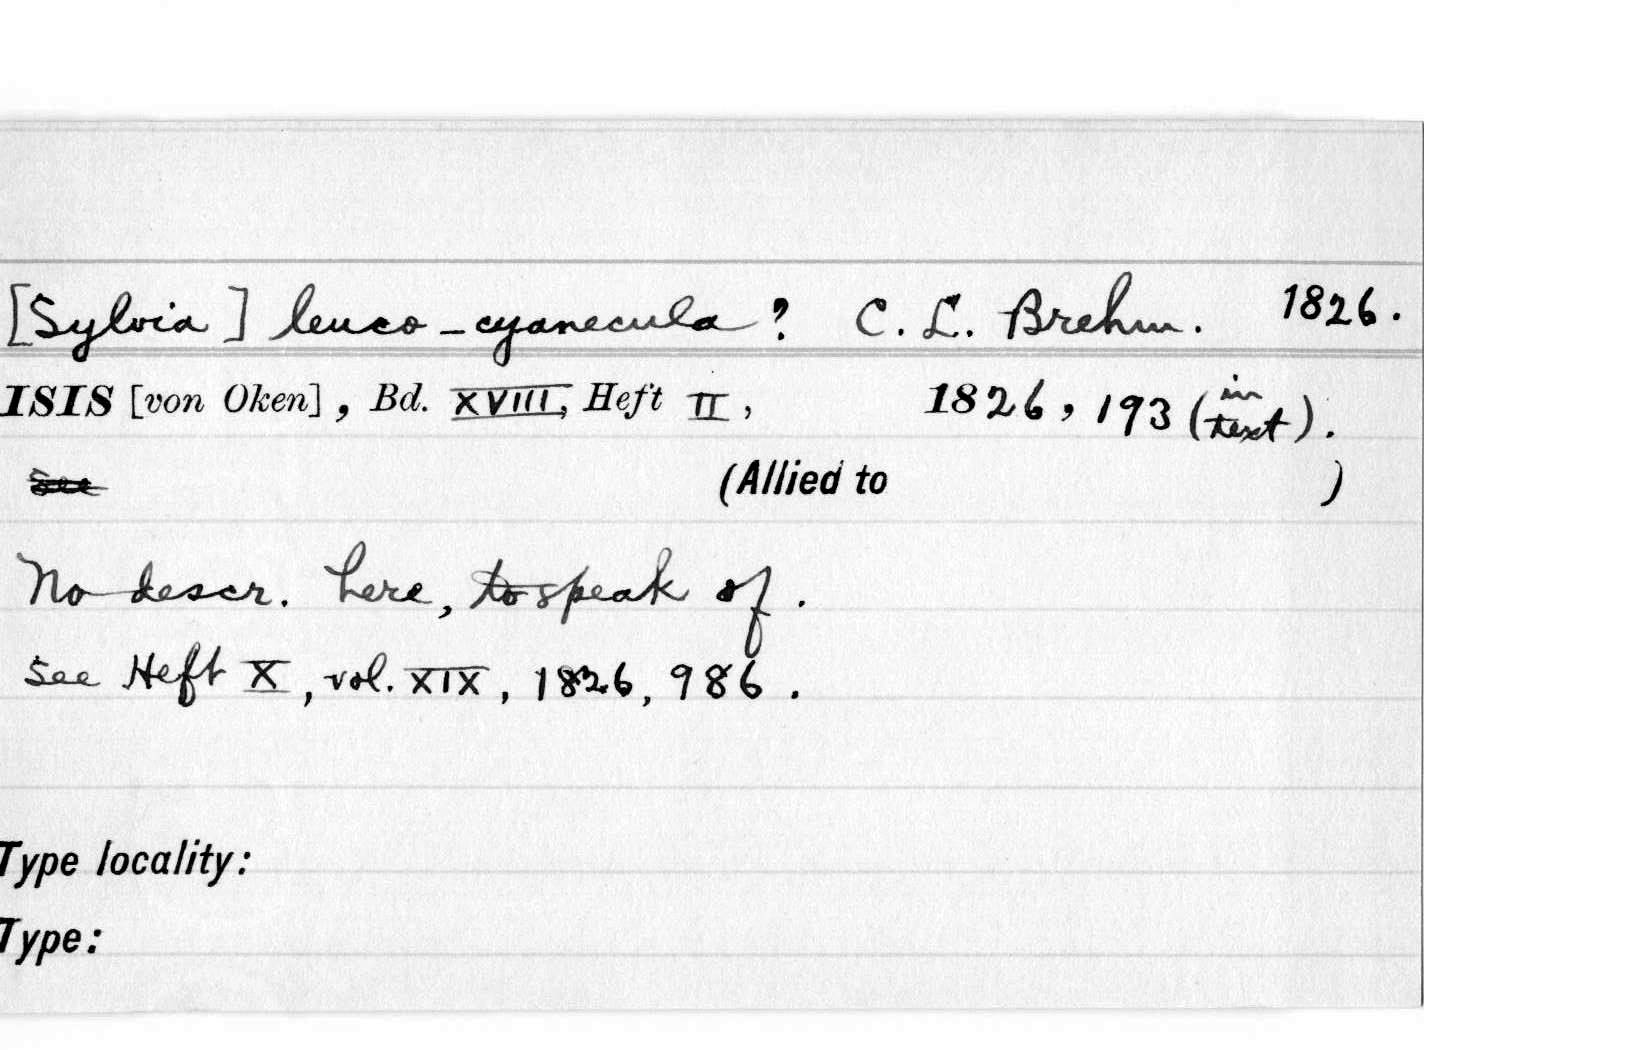 [Sylvia] leuco-cyanecula? C. L. Brehm. 1826.
ISIS [von Oken], Bd. XVIII, Heft II, 1826, 193 (in text).
See (Allied to )
No descr. here, to speak of.
See Heft X, vol. XIX, 1826, 986.
Type locality:
Type: